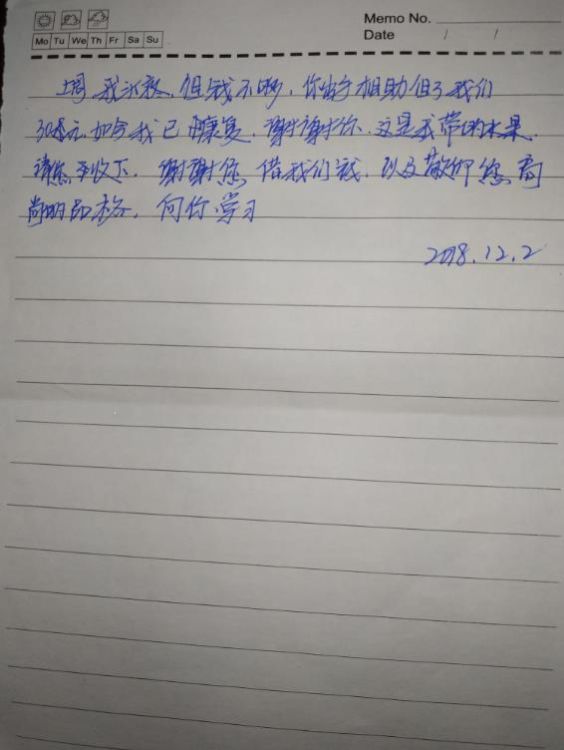 Memo No.
Mo Tu We Th Fr Sa Su
Date / /
上周我 但钱不够,你 相助借了我们
30 元,如今我已 康复,谢谢谢你,这是我带的水果,
请您 收下,谢谢您 借我们钱,以及敬仰您高
尚的品格,向你学习
2018.12.2